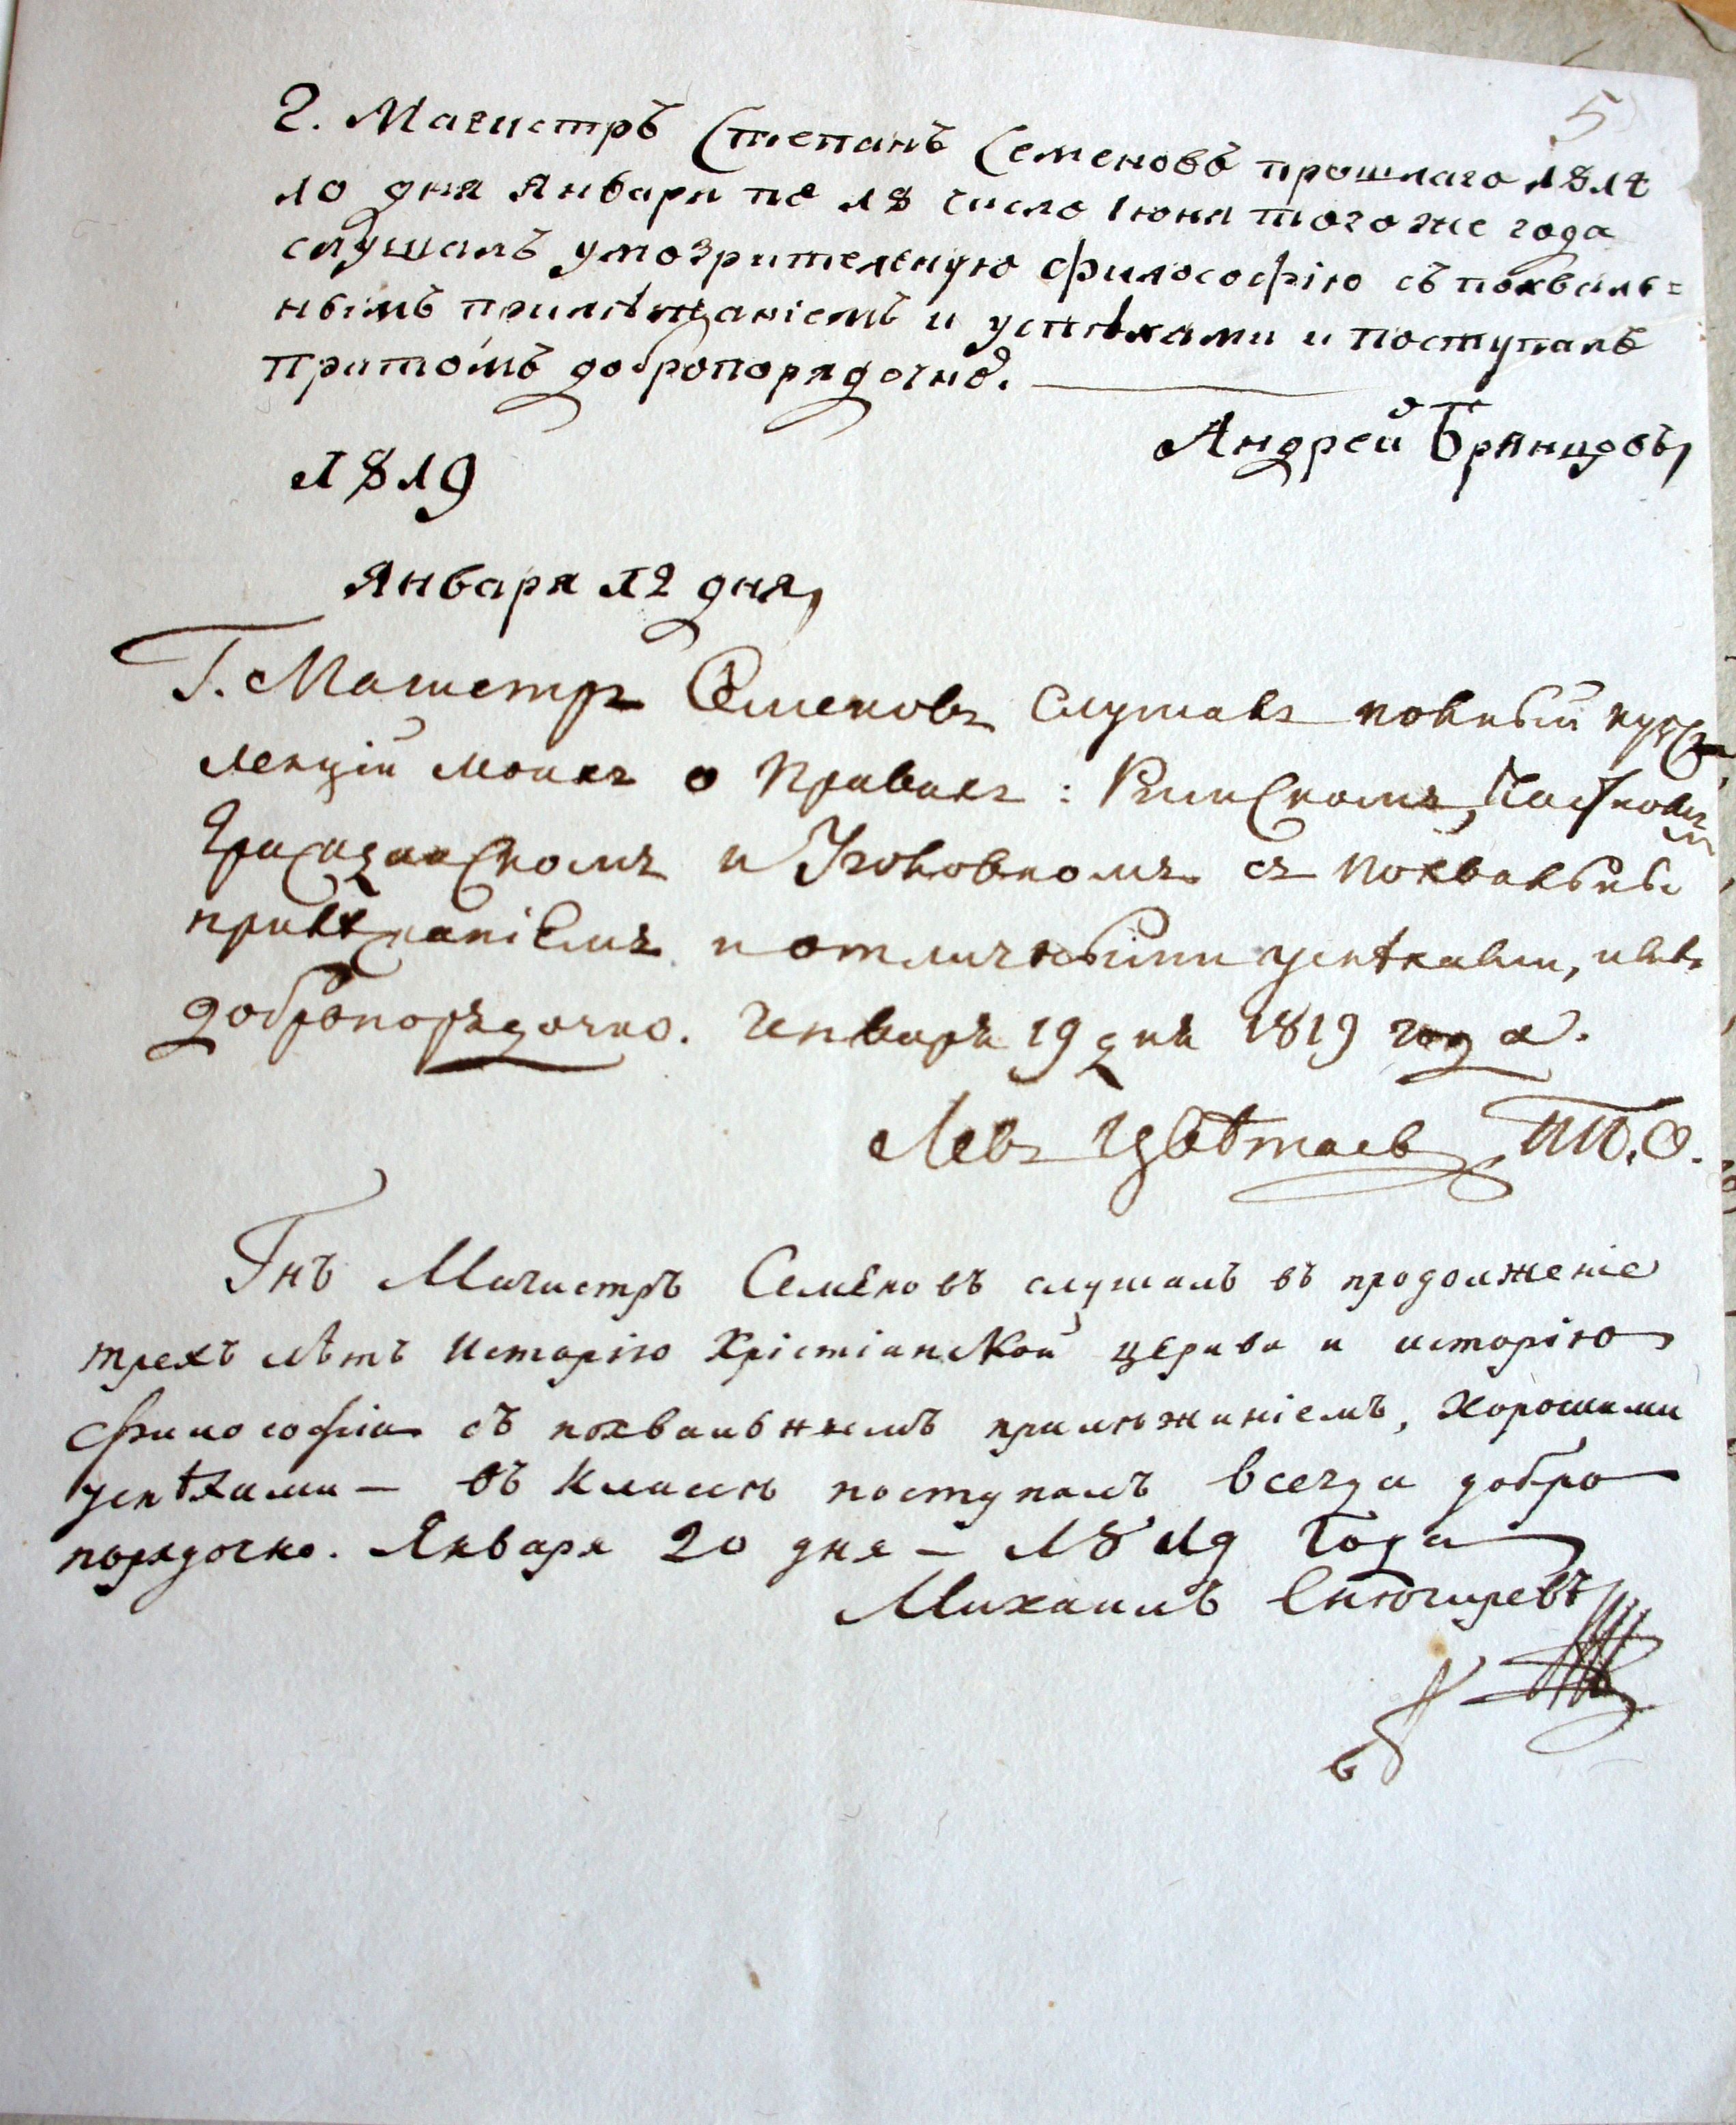 5
2. Магистръ Степанъ Семеновъ прошлаго 1814
10 дня Января по 18 число Іюня тогоже года
слушалъ умозрительную философію съ похваль=
нымъ прилѣжаніемъ и успѣхами и поступалъ
притомъ добропорядочно.
Андрей Брянцовъ,
1819
Января 12 дня,
Г. Магистръ Семеновъ слушалъ полный курсъ
лекцій моихъ о Правахъ: Римскомъ, Частномъ
Гражданскомъ и Уголовномъ съ похвальны
прилѣжаніемъ и отличными успѣхами,
добропорядочно. Генваря 19 дня 1819 года.
Левъ Цвѣтаев П.П.О.
Гнъ Магистръ Семеновъ слушалъ въ продолженіе
трехъ лѣтъ Исторію Христіанской церкви и исторію
философіи съ похвальнымъ прилѣжаніемъ, хорошими
успѣхами — въ классѣ поступалъ всегда добро
порядочно. Января 20 дня — 1819 года
Михаилъ Снѣгиревъ